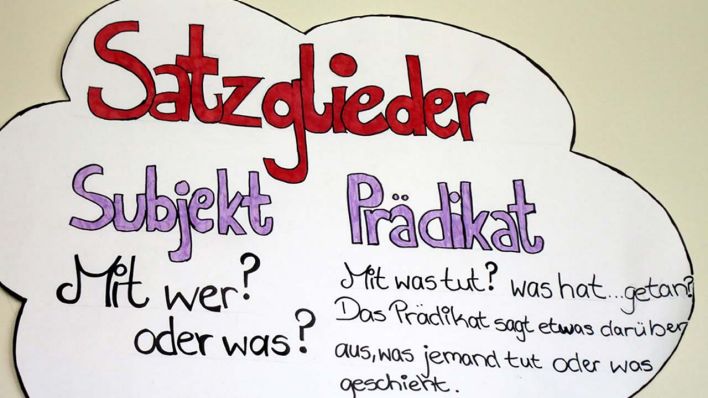 Satzglieder
Subjekt
Mit wer?
oder was?
Prädikat
Mit was tut? was hat...getan?
Das Prädikat sagt etwas darüber
aus, was jemand tut oder was
geschieht.